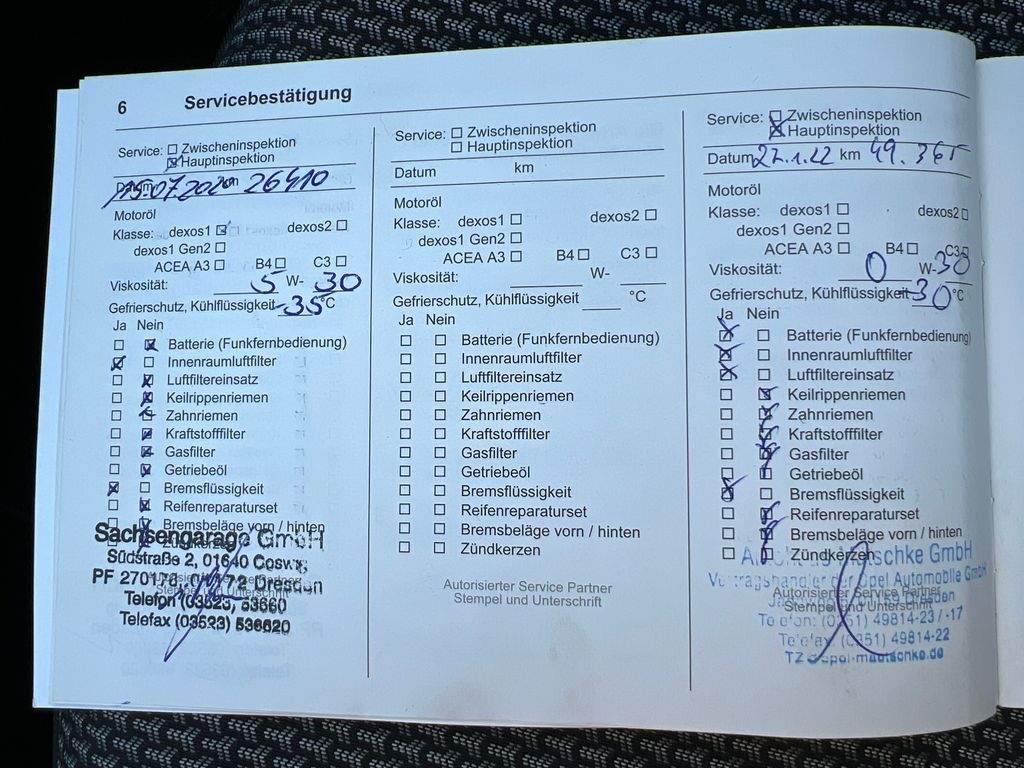 6 Servicebestätigung
Service: Zwischeninspektion
Hauptinspektion
Datum 15.07.2020 km 26410
Motoröl
Klasse: dexos1 dexos2
dexos1 Gen2
ACEA A3 B4 C3
Viskosität: 5 W- 30
Gefrierschutz, Kühlflüssigkeit -35 °C
Ja Nein
Batterie (Funkfernbedienung)
Innenraumluftfilter
Luftfiltereinsatz
Keilrippenriemen
Zahnriemen
Kraftstofffilter
Gasfilter
Getriebeöl
Bremsflüssigkeit
Reifenreparaturset
Bremsbeläge vorn / hinten
Zündkerzen
Sachsengarage GmbH
Südstraße 2, 01640 Coswig
PF 270176, Dresden
Autorisierter Service Partner
Stempel und Unterschrift
Telefon (03523) 53660
Telefax (03523) 536620
Service: Zwischeninspektion
Hauptinspektion
Datum km
Motoröl
Klasse: dexos1 dexos2
dexos1 Gen2
ACEA A3 B4 C3
Viskosität: W-
Gefrierschutz, Kühlflüssigkeit °C
Ja Nein
Batterie (Funkfernbedienung)
Innenraumluftfilter
Luftfiltereinsatz
Keilrippenriemen
Zahnriemen
Kraftstofffilter
Gasfilter
Getriebeöl
Bremsflüssigkeit
Reifenreparaturset
Bremsbeläge vorn / hinten
Zündkerzen
Autorisierter Service Partner
Stempel und Unterschrift
Service: Zwischeninspektion
Hauptinspektion
Datum 27.1.22 km 49.365
Motoröl
Klasse: dexos1 dexos2
dexos1 Gen2
ACEA A3 B4 C3
Viskosität: 0 W- 30
Gefrierschutz, Kühlflüssigkeit -30 °C
Ja Nein
Batterie (Funkfernbedienung)
Innenraumluftfilter
Luftfiltereinsatz
Keilrippenriemen
Zahnriemen
Kraftstofffilter
Gasfilter
Getriebeöl
Bremsflüssigkeit
Reifenreparaturset
Bremsbeläge vorn / hinten
Zündkerzen
GmbH
Vertragshändler der Opel Automobile GmbH
Autorisierter Service Partner
Dresden
Stempel und Unterschrift
Telefon: (0351) 49814-23 / -17
Telefax: (0351) 49814-22